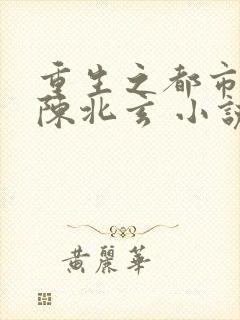 重生之都市
陳北玄 小說
黃麗華